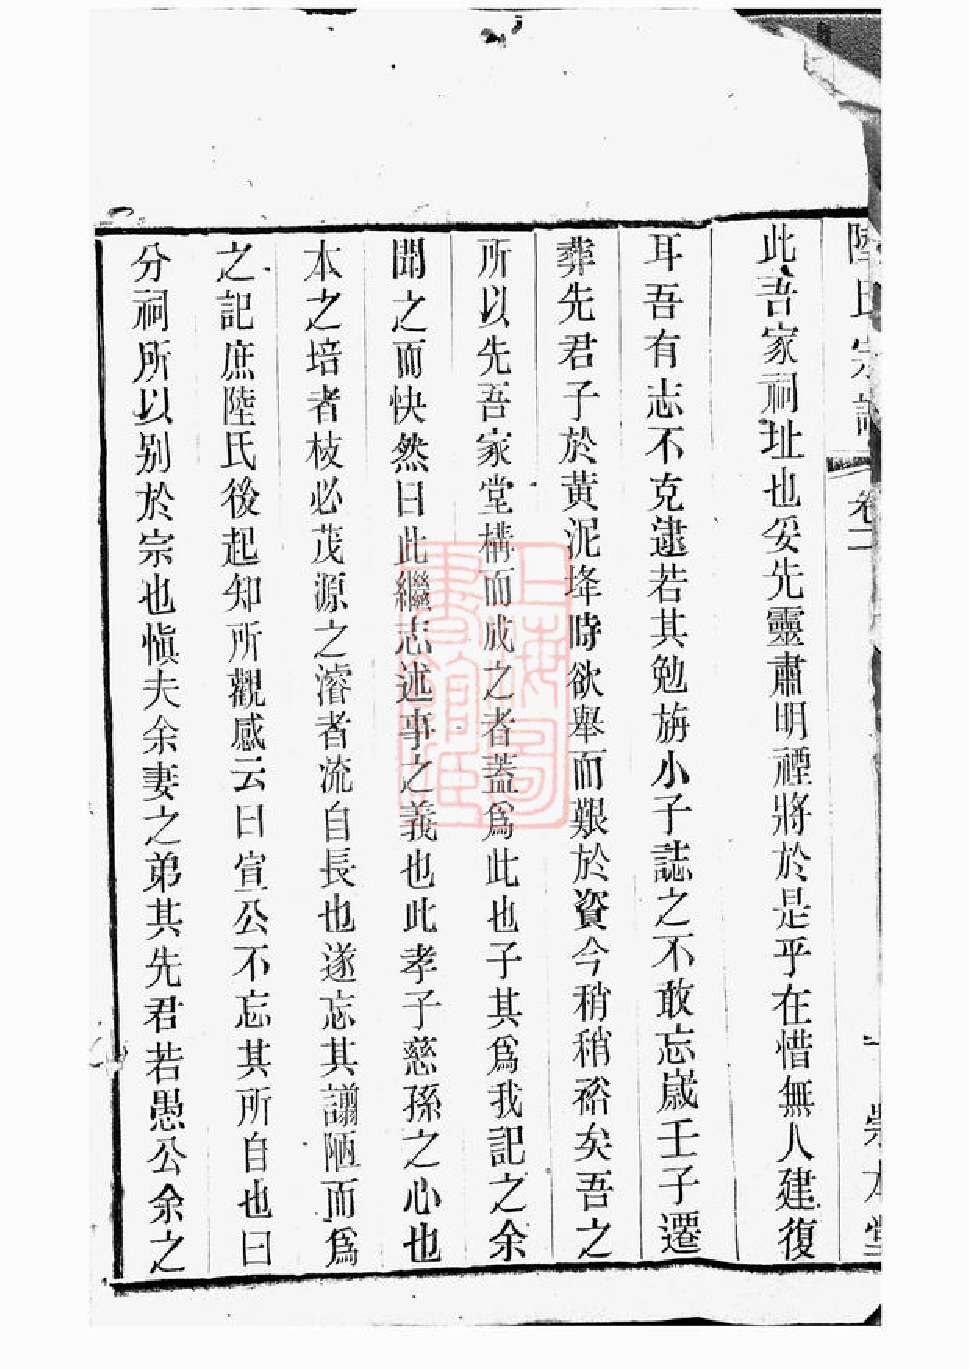 陸氏宗譜 卷一 一 崇本堂
此吾家祠址也妥先靈肅明禋將於是乎在惜無人建復
耳吾有志不克逮若其勉旃小子誌之不敢忘嵗壬子遷
葬先君子於黄泥垾時欲舉而艱於資今稍稍裕矣吾之
所以先吾家堂構而成之者蓋爲此也子其爲我記之余
聞之而快然曰此繼志述事之義也此孝子慈孫之心也
本之培者枝必茂源之濬者流自長也遂忘其譾陋而爲
之記庶陸氏後起知所觀感云曰宣公不忘其所自也曰
分祠所以别於宗也愼夫余妻之弟其先君若愚公余之
上海圖書館藏